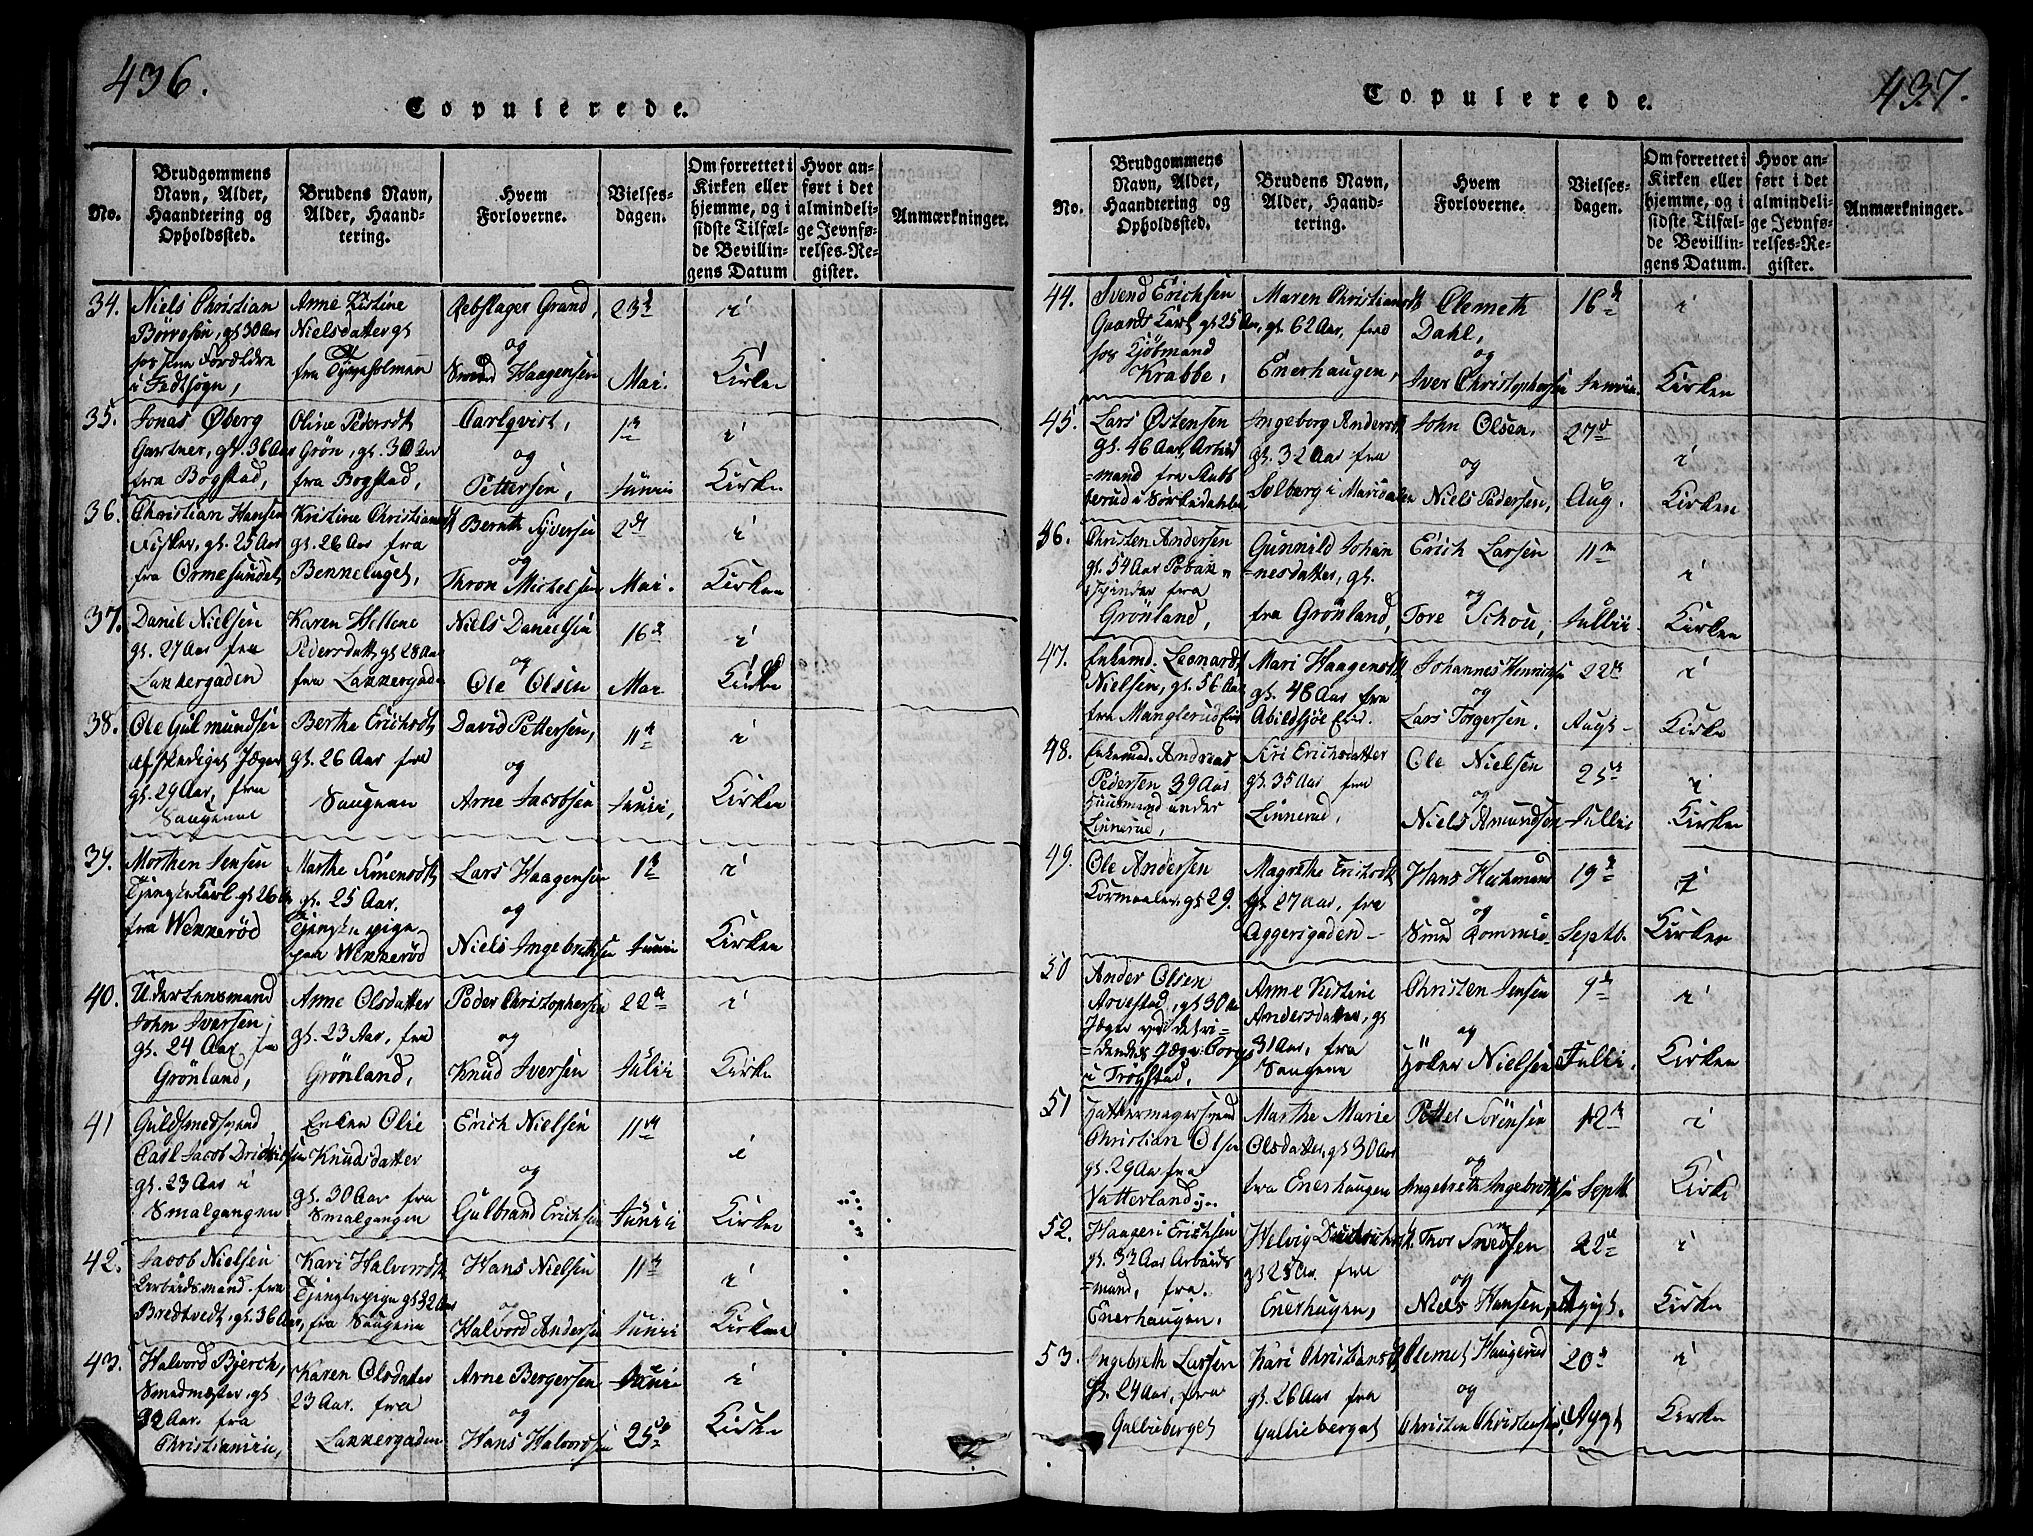 436.
Copulerede.
No.
Brudgommens
Navn, Alder,
Haandtering og
Opholdssted.
Brudens Navn,
Alder, Haand-
tering.
Hvem
Forloverne.
Vielses-
dagen.
Om forrettet i
Kirken eller
hjemme, og i
sidste Tilfæl-
de Bevillin-
gens Datum
Hvor an-
ført i det
almindeli-
ge Jevnfø-
relses-Re-
gister.
Anmærkninger.
34.
Niels Christian
gl. 30 Aar
Anne Kistine
Nielsdatter gl
fra
Rebslager Grand,
og
Smed Haagensen
23d
Mai.
i
Kirken
35.
Jonas Øberg
Gartner, gl. 36 Aar
fra Bogstad,
Oline Pedersdt
Grön, gl. 30 Aar
fra Bogstad,
Carlqvist,
og
Pettersen,
1ste
Junii
i
Kirken
36.
Christian Hansen
Fisker, gl. 25 Aar
fra Ormesundet,
Kristine Christiansdt
gl. 26 Aar fra
Benneluget,
Bernth Syversen
og
Thron Michelsen
2de
Mai.
i
Kirken
37.
Daniel Nielsen
gl. 27 Aar fra
Lakkergaden
Karen Hellene
Pedersdatt, gl 28 Aar
fra Lakkergaden
Niels Danielsen
og
Ole Olsen
16de
Mai
i
Kirken
38.
Ole Gulmundsen
afskediget Jæger,
gl. 29 Aar, fra
Saugene
Berthe Erichsdt,
gl. 26 Aar fra
Saugene
David Pettersen,
og
Arne Jacobsen
11te
Junii,
i
Kirken
39.
Morthen Jensen
Tjenestekarl gl 26 Aar
fra Wekkerød
Marthe Simensdt
gl. 25 Aar.
Tjenstepige
paa Wekkerød
Lars Haagensen
og
Niels Ingebrethsen
1ste
Junii
i
Kirken
40.
Underlensmand
John Iversen,
gl. 24 Aar fra
Grönland,
Anne Olsdatter
gl. 23 Aar, fra
Grönland,
Peder Christophersen
og
Knud Iversen
22de
Julii
i
Kirke
41
Guldsmedsvend
Carl Jacob
gl. 23 Aar i
Smalgangen
Enken Olie
Knudsdatter
gl. 30 Aar fra
Smalgangen
Erich Nielsen
og
Gulbrand Erichsen
11te
Junii
i
Kirken
42.
Jacob Nielsen
Arbeidsmand fra
Bredtvedt, gl. 36 Aar,
Kari Halvorsdt
Tjenstepige gl 32 Aar
fra Saugene
Hans Nielsen
og
Halvord Andersen
11te
Junii
i
Kirken
43.
Halvord Bjerch,
Smedmester, gl
32 Aar. fra
Christiania,
Karen Olsdatter
23 Aar. fra
Lakkergaden
Arne Bergersen
og
Hans Halvordsen
Junii
25de
i
Kirke
437.
Copulerede.
No.
Brudgommens
Navn, Alder,
Haandtering og
Opholdssted.
Brudens Navn,
Alder, Haand-
tering.
Hvem
Forloverne.
Vielses-
dagen.
Om forrettet i
Kirken eller
hjemme, og i
sidste Tilfæl-
de Bevillin-
gens Datum.
Hvor an-
ført i det
almindeli-
ge Jevnfø-
relses-Re-
gister.
Anmærkninger.
44.
Svend Erichsen
Gaards Karl gl 25 Aar,
hos Kjøbmand
Krabbe,
Maren Christiansdt
gl. 62 Aar, fra
Enerhaugen,
Clemeth
Dahl,
og
Iver Christophersen
16de
Junii
i
Kirken
45.
Lars Østensen
gl. 46 Aar, Arbeids
=mand fra Stubs
berud i Sørkedahlen
Ingeborg Andersdt
gl. 32 Aar fra
Solberg i Maridalen
John Olsen,
og
Niels Pedersen,
27de
Aug.
i
Kirken
46.
Christen Andersen
gl. 54 Aar Tobak=
spinder fra
Grönland,
Gunnild Johan
=nesdatter, gl.
fra Grönland,
Erich Larsen
og
Tore Schou,
11te
Jullii.
i
Kirken
47.
Enkemd. Leonardt
Nielsen, gl. 56 Aar
fra Manglerud Eie
Mari Haagensdt
gl. 48 Aar fra
Abildsjøl Eie.
Johannes Henrichsen
og
Lars Torgersen.
22de
Augt
i
Kirke
48.
Enkemd. Andreas
Pedersen 39 Aar
Huusmand under
Linnerud,
Kri Erichsdatter
gl. 35 Aar fra
Linnerud,
Ole Nielsen
og
Niels Amundsen
25de
Jullii
i
Kirken
49.
Ole Andersen
gl 29.
Magrethe Erichsdt
gl. 27 Aar, fra
Aggersgaden
Hans Heckmand
og
Smed
19de
Septb.
i
Kirken
50
Ander Olsen
gl 30 Aar
Jæger ved detri=
=denske Jæger Corps
i Trøgstad.
Anne Kistine
Andersdatter, gl
31 Aar, fra
Saugene
Christen Jensen
og
Höker Nielsen
9de
Julli.
i
Kirken
51
Hattemagersvend
Christian Olsen
gl. 29 Aar fra
Vatterland
Marthe Marie
Olsdatter, gl 30 Aar
fra Enerhaugen
Petter Sörensen
og
Ingebreth Ingebrethsen
12te
Septt
i
Kirke
52.
Haagen Erichsen
gl. 32 Aar Arbeids
=mand, fra.
Enerhaugen.
Helvig
gl 25 Ar. fra
Enerhaugen,
Thor Svedsen
og
Niels Hansen,
22de
Avgst.
i
Kirke
53.
Ingebreth Larsen
gl. 24 Aar, fra
Gallieberget
Kari Christiansdt,
gl. 26 Aar fra
Gallieberget
Clemet Haugerud
og
Christen Christensen,
20de
Avgt
i
Kirke